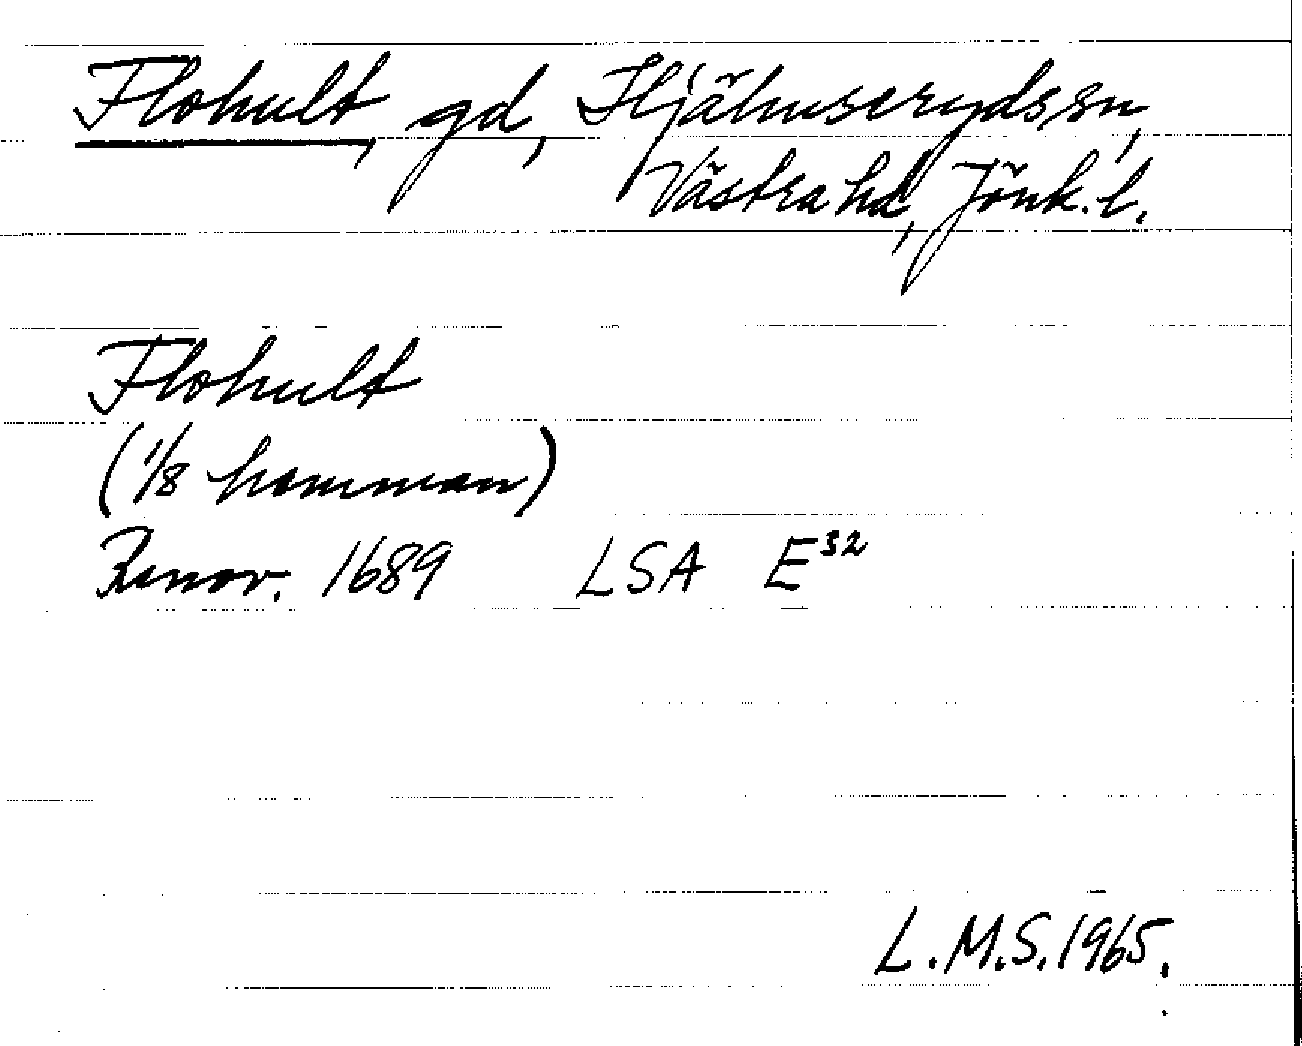 Flohult, gd, Hjälmseryds sn,
Västra hd, Jönk. l.
Flohult
(1/8 hemman)
Renov. 1689 LSA E32
L.M.S. 1965.